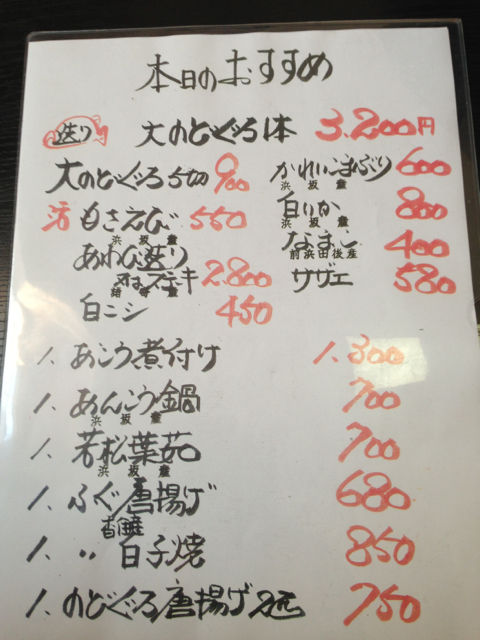 本日のおすすめ
造り 大のどぐろ1本 3.200円
大のどぐろ5切 900
活 白さえび 550
浜坂産
あわび造り
又はステキ 2.800
白ニシ 450
かれいこまぶり 600
浜坂産
白いか 800
浜坂産
なまこ 400
前浜田後産
サザエ 580
1. あこう煮付け 1.300
1. あんこう鍋 700
浜坂産
1. 若松葉茹 700
浜坂産
1. ふぐ唐揚げ 680
香住産
1. 〃 白子焼 850
1. のどぐろ唐揚げ2匹 750